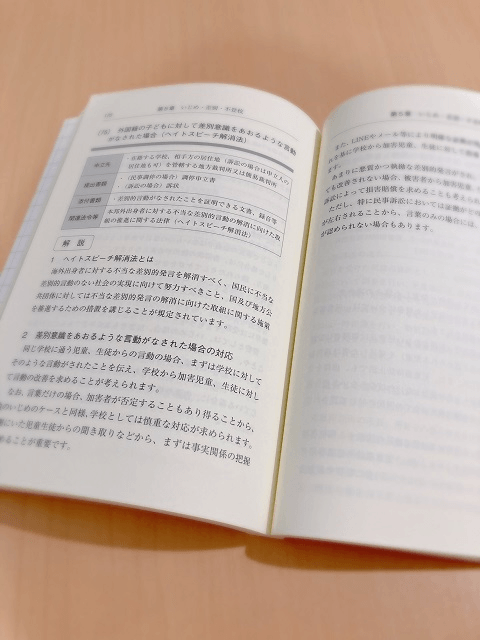 第６章　いじめ・差別・不登校
外国籍の子どもに対して差別意識をあおるような言動
がなされた場合（ヘイトスピーチ解消法）
申立先
・在籍する学校、相手方の居住地（訴訟の場合は申立人の
居住地も可）を管轄する地方裁判所又は簡易裁判所
提出書類
・（民事調停の場合）調停申立書
・（訴訟の場合）訴状
添付書類
・差別的言動がなされたことを証明できる文書、録音等
関連法令等
本邦外出身者に対する不当な差別的言動の解消に向けた取
組の推進に関する法律（ヘイトスピーチ解消法）
解　説
１　ヘイトスピーチ解消法とは
海外出身者に対する不当な差別的発言を解消すべく、国民に不当な
差別的言動のない社会の実現に向けて努力すべきこと、国及び地方公
共団体に対しては不当な差別的発言の解消に向けた取組に関する施策
を推進するための措置を講じることが規定されています。
２　差別意識をあおるような言動がなされた場合の対応
同じ学校に通う児童、生徒からの言動の場合、まずは学校に対して
そのような言動がされたことを伝え、学校から加害児童、生徒に対し
て言動の改善を求めることが考えられます。
なお、言葉だけの場合、加害者が否定することもあり得ることから、
のいじめのケースと同様、学校としては慎重な対応が求められます。
にいた児童生徒からの聞き取りなどから、まずは事実関係の把握
ることが重要です。
また、LINEやメール等により
に学校から加害児童、生徒に対して
あまりに悪質かつ執拗な差別的発言が
も改善されない場合、被害者から加害児童
訴訟によって損害賠償を求めることも考え
ただし、特に民事訴訟においては証拠が
が左右されることから、言葉のみの場合には、
が認められない場合もあります。